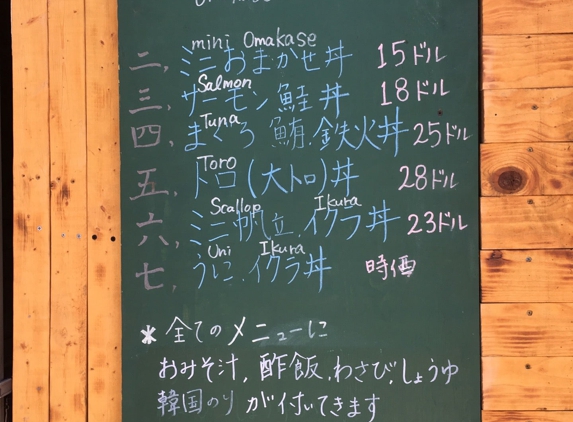 mini Omakase
二, ミニおまかせ丼 15ドル
Salmon
三, サーモン鮭丼 18ドル
Tuna
四, まぐろ鮪.鉄火丼 25ドル
Toro
五, トロ(大トロ)丼 28ドル
Scallop Ikura
六, ミニ帆立.イクラ丼 23ドル
Uni Ikura
七, うに.イクラ丼 時価
* 全てのメニューに
おみそ汁, 酢飯,わさび,しょうゆ
韓国のりが付いてきます